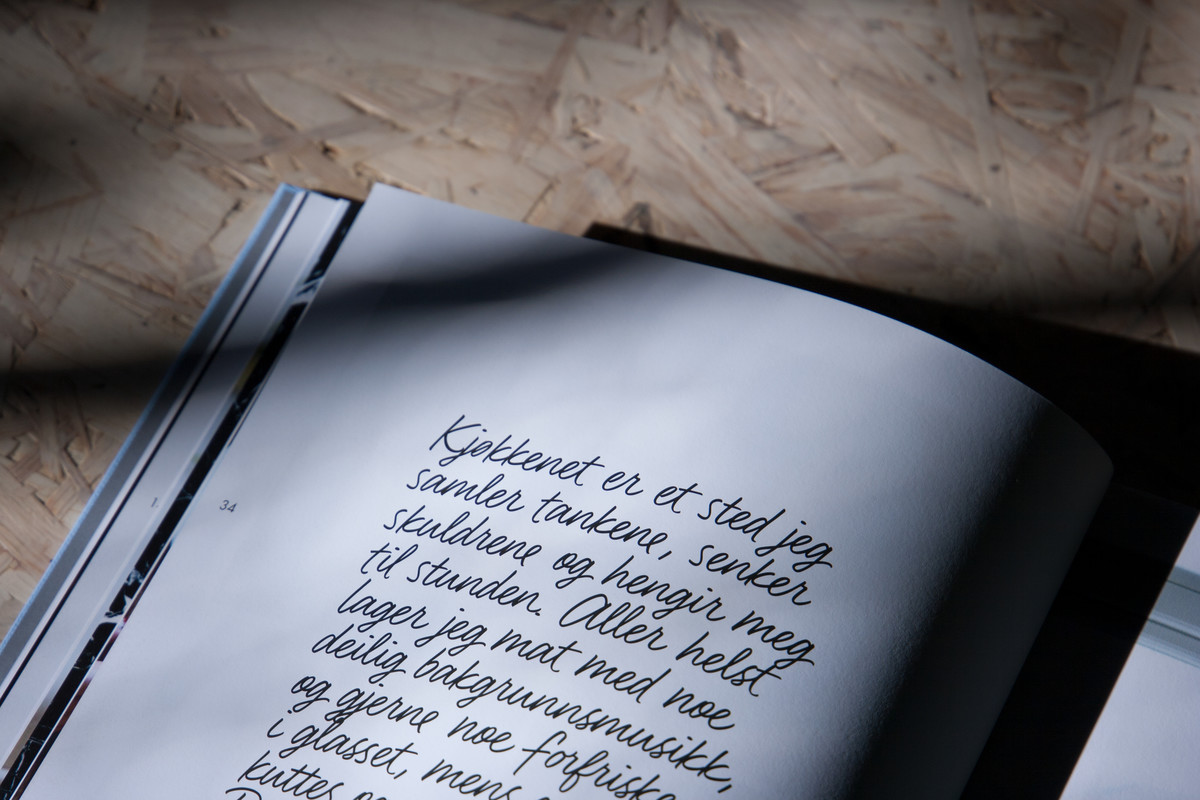 34
Kjøkkenet er et sted jeg
samler tankene, senker
skuldrene og hengir meg
til stunden. Aller helst
lager jeg mat med noe
deilig bakgrunnsmusikk,
og gjerne noe
i glasset, mens
kuttes